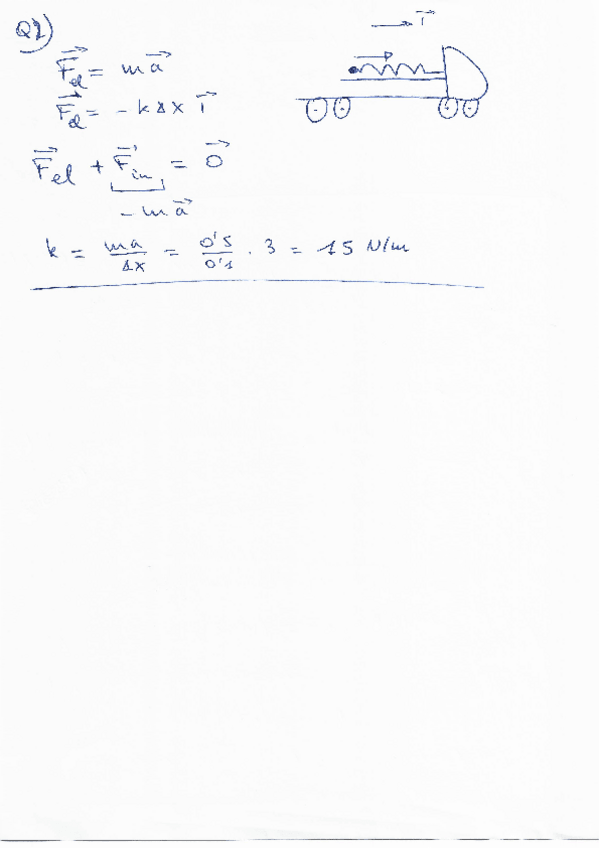 Q2)
→ i⃗
F⃗el = ma⃗
F⃗el = - k Δx i⃗
F⃗el + F⃗in = 0⃗
- ma⃗
k = ma/Δx = 0'5/0'1 · 3 = 15 N/m